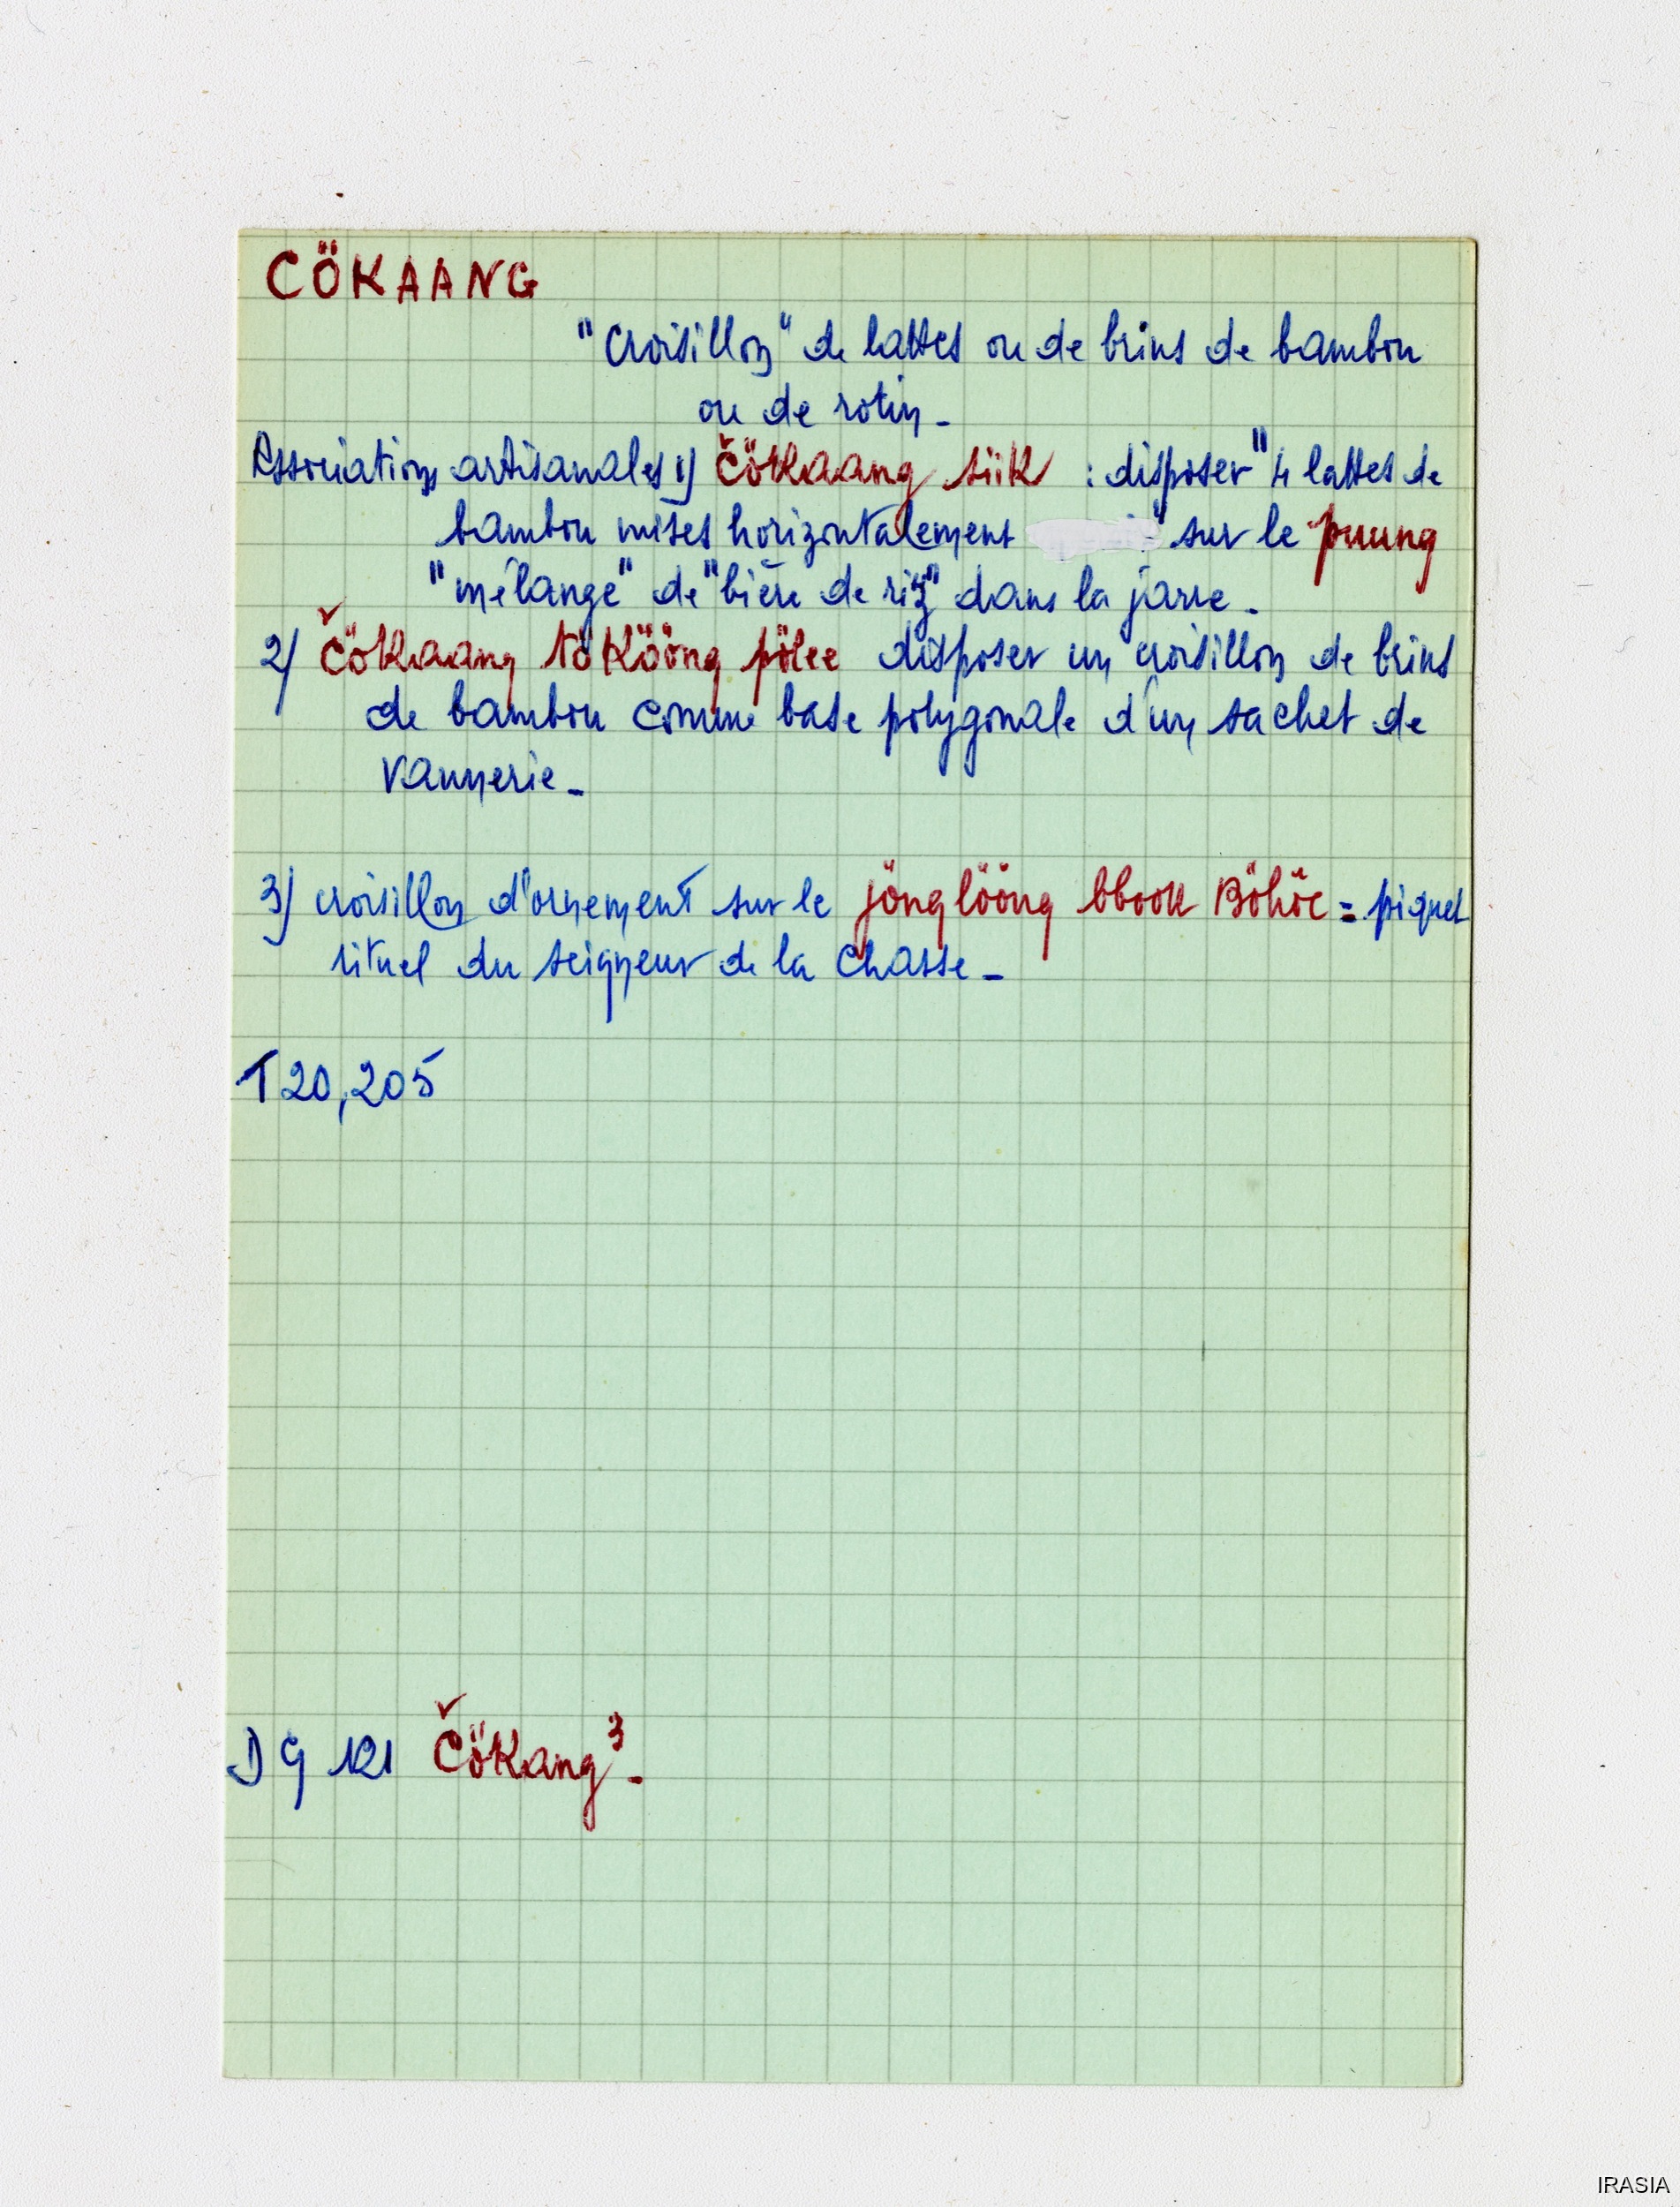 CÖKAANG
"croisillon" de lattes ou de brins de bambou
ou de rotin_
Associations artisanales 1) čökaang siik : disposer "4 lattes de
bambou mises horizontalement " sur le puung
"mélange" de "bière de riz" dans la jarre_
2) čökaang tököông pölee disposer un croisillon de brins
de bambou comme base polygonale d'un sachet de
vannerie_
3) croisillon d'ornement sur le jönglööng bbook Böhöc = piquet
rituel du seigneur de la chasse_
T20,205
DG 121 Čökang³_
IRASIA